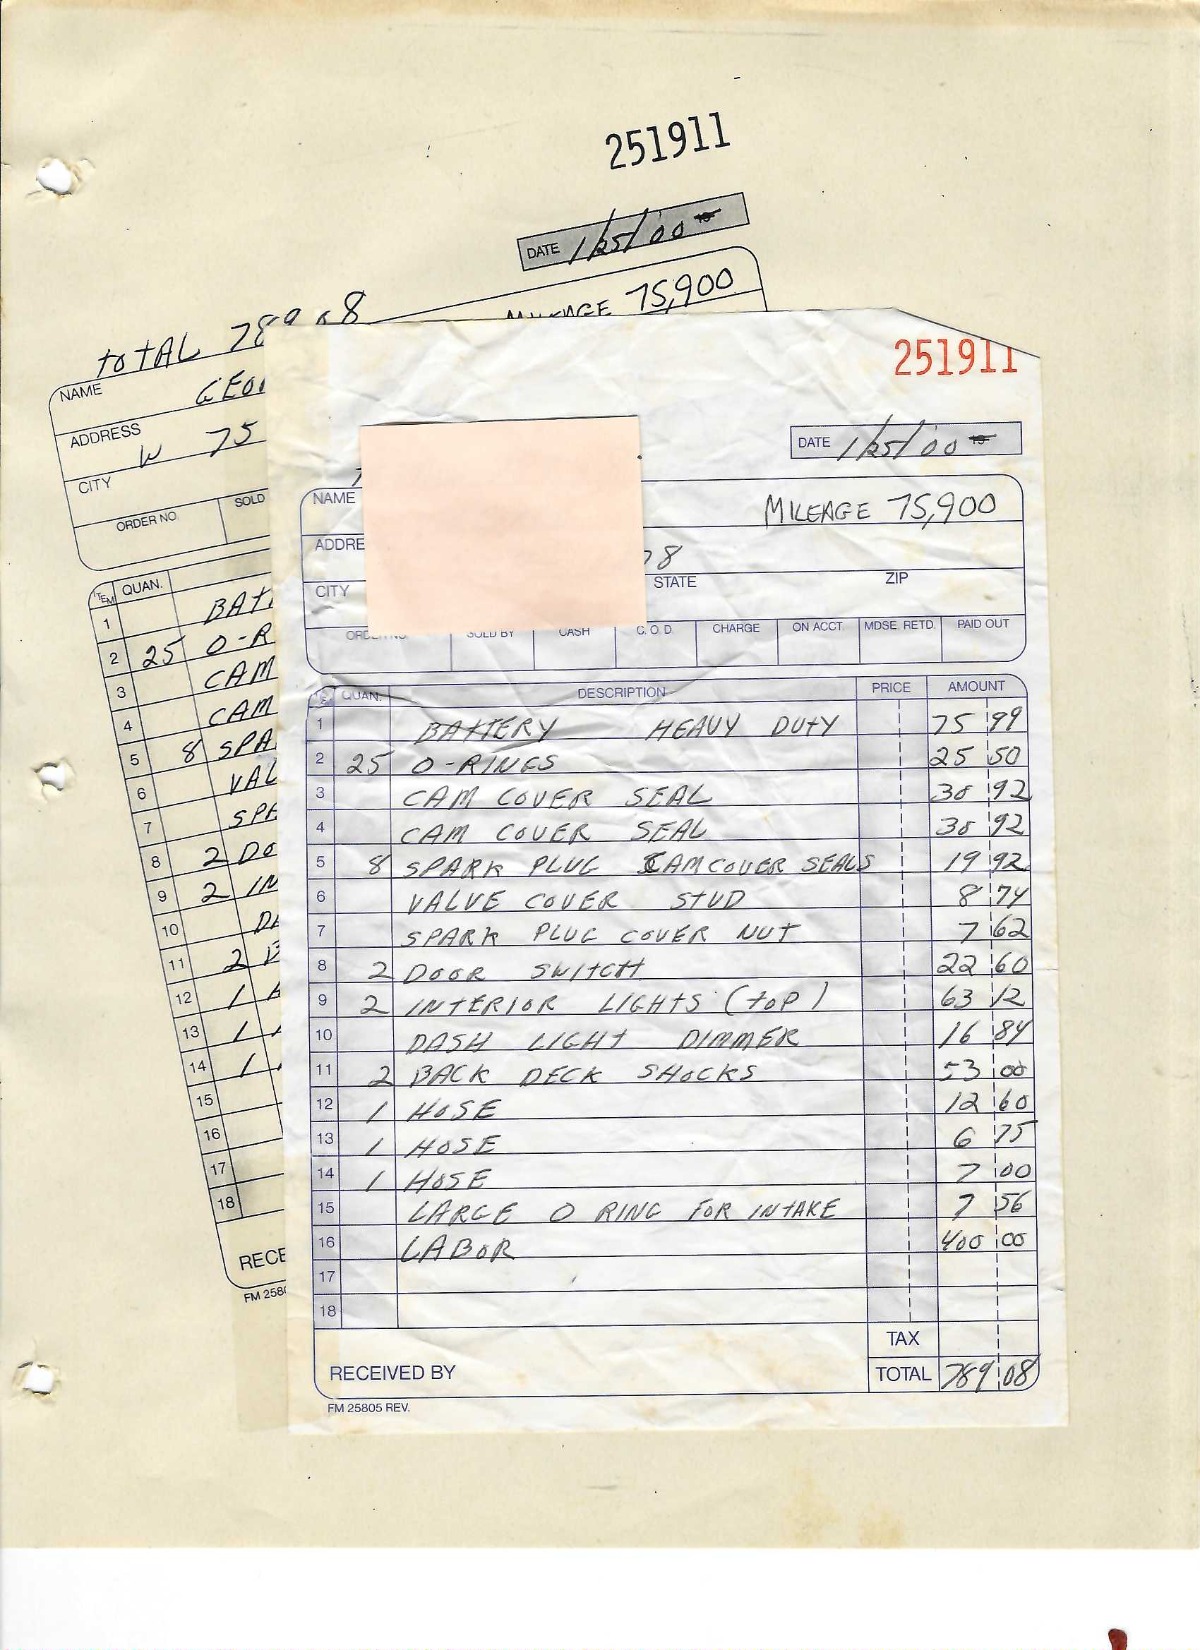 251911
DATE 1/25/00 19
MILEAGE 75,900
TOTAL 789.08
NAME GEO
ADDRESS W 75
CITY
ORDER NO. SOLD
ITEM QUAN.
1 BAT
2 25 O-R
3 CAM
4 CAM
5 8 SPA
6 VAL
7 SPA
8 2 DO
9 2 IN
10 DA
11 2 B
12 1 H
13 1
14 1
15
16
17
18
RECE
FM 2580
251911
DATE 1/25/00 19
NAME MILEAGE 75,900
ADDRE 78
CITY STATE ZIP
ORDER NO. SOLD BY CASH C. O. D. CHARGE ON ACCT. MDSE. RETD. PAID OUT
ITEM QUAN. DESCRIPTION PRICE AMOUNT
1 BATTERY HEAVY DUTY 75 99
2 25 O-RINGS 25 50
3 CAM COVER SEAL 30 92
4 CAM COVER SEAL 30 92
5 8 SPARK PLUG CAM COVER SEALS 19 92
6 VALVE COVER STUD 8 74
7 SPARK PLUG COVER NUT 7 62
8 2 DOOR SWITCH 22 60
9 2 INTERIOR LIGHTS (TOP) 63 12
10 DASH LIGHT DIMMER 16 84
11 2 BACK DECK SHOCKS 53 00
12 1 HOSE 12 60
13 1 HOSE 6 75
14 1 HOSE 7 00
15 LARGE O RING FOR INTAKE 7 56
16 LABOR 400 00
17
18
TAX
RECEIVED BY TOTAL 789 08
FM 25805 REV.